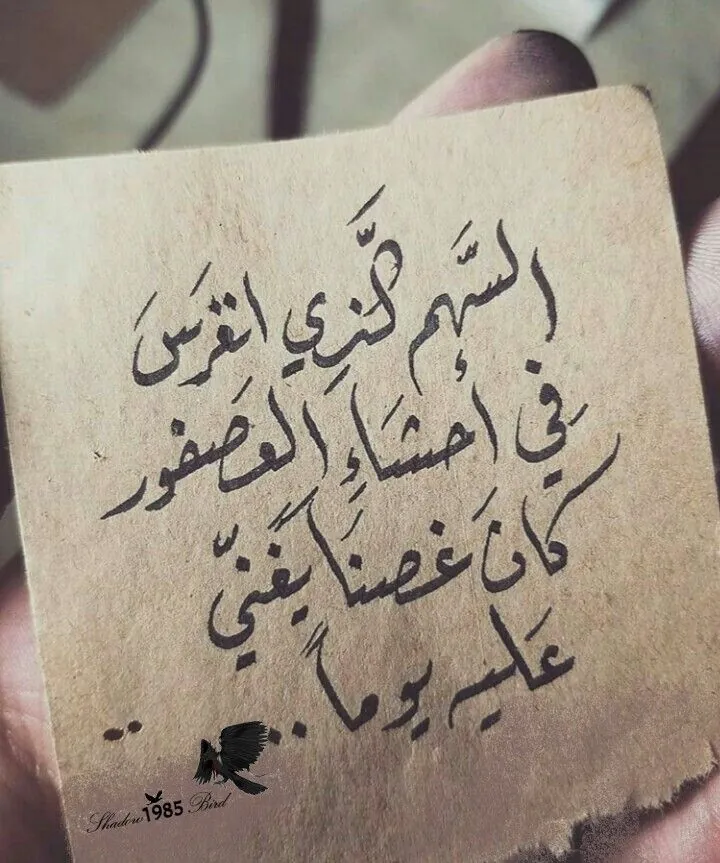 السَّهم الَّذِي انغرَسَ
فِي أحشَاءِ العصَفور
كانَ غصنَاً يغَنيّ
عَليه يوماً ..
..
Shadow 1985 Bird